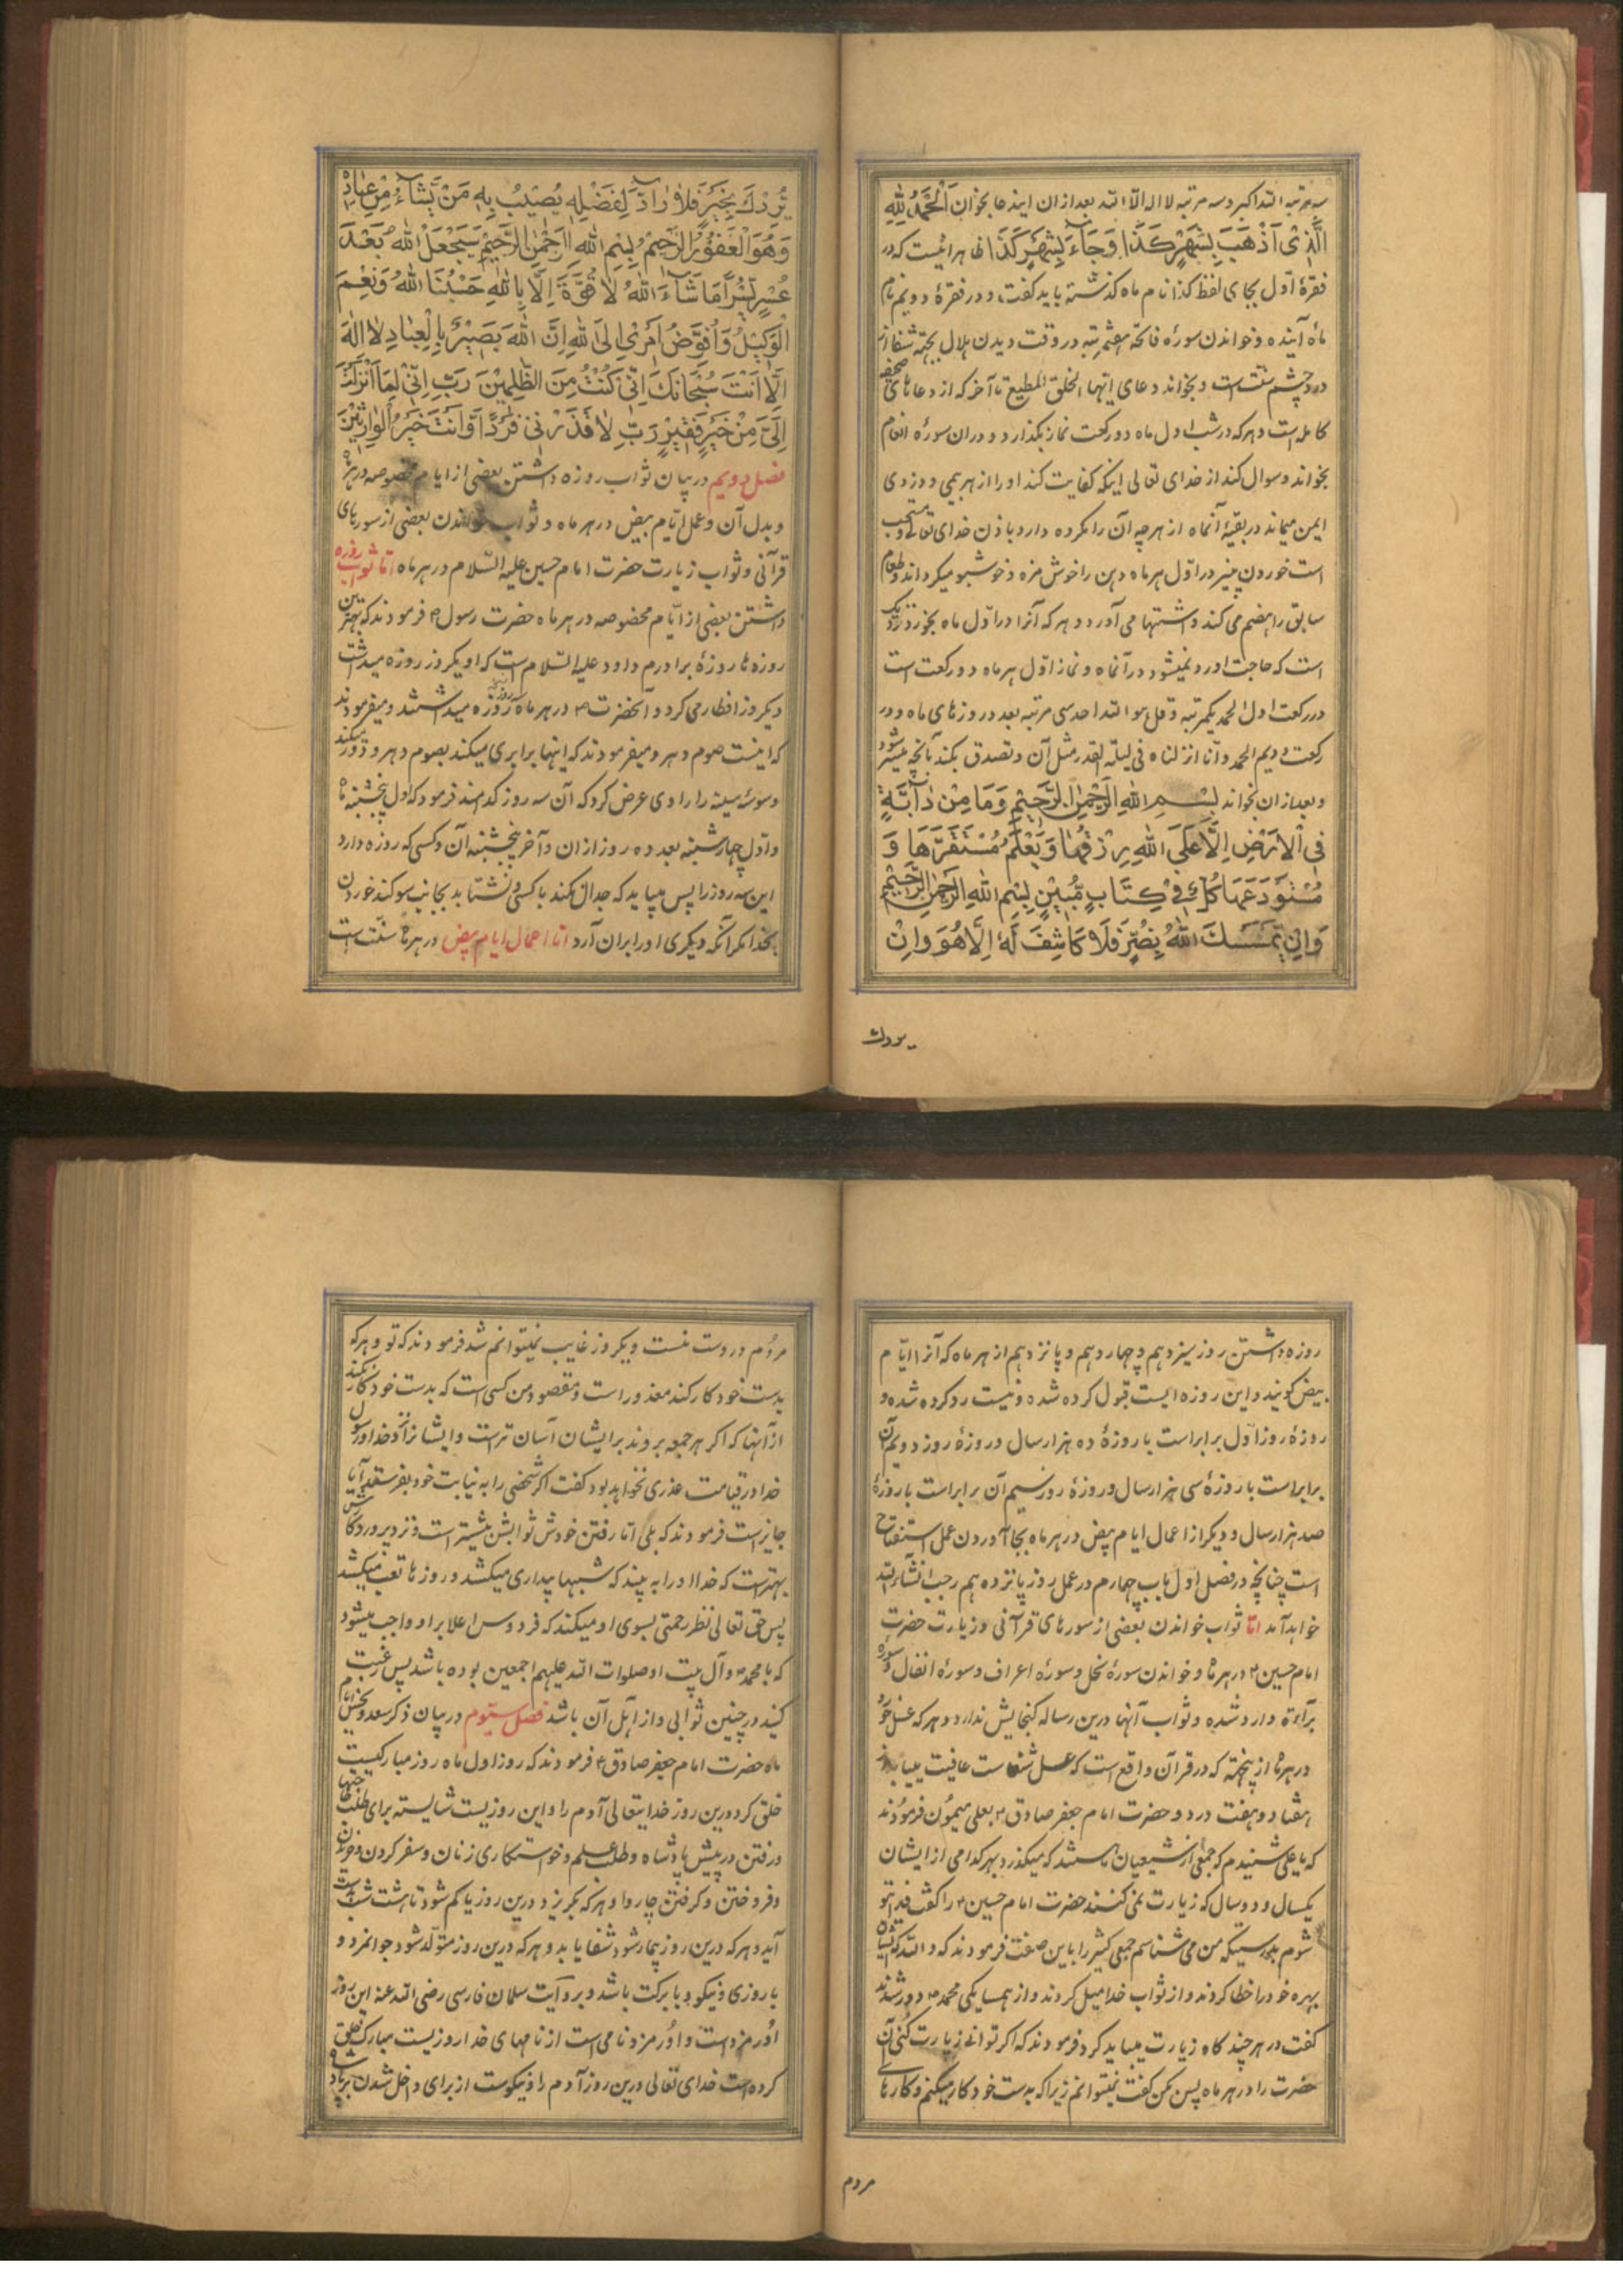 سه مرتبه الله اکبر و سه مرتبه لا اله الا الله بعد از ان ایندعا بخوان اَلْحَمْدُ لِلّٰهِ
الَّذِیْ اَذْهَبَ بِشَهْرِ كَذَا وَجَاۤءَ بِشَهْرِ كَذَا ظاهر اینست که در
فقرهٔ اوّل بجای لفظ کذا نام ماه کذشته باید کفت و در فقرهٔ دویم نام
ماه آینده و خواندن سورهٔ فاتحه هفتمرتبه در وقت دیدن هلال بجهة شفا از
درد چشم سنّت است و بخواند دعای ایتها الخلق المطیع تا آخر که از دعاهای صحیفه
کامله است و هرکه در شب اول ماه دو رکعت نماز بکذارد و در ان سورهٔ انعام
بخواند و سوال کند از خدای تعالی اینکه کفایت کند او را از هر بیمی و دردی
ایمن میماند در بقیهٔ آنماه از هر چه آن را مکروه دارد باذن خدای تعالی و مستحب
است خوردن پنیر در اوّل هر ماه دهن را خوش مزه و خوشبو میکرداند و طعام
سابق را هضم می کند و اشتها می آورد و هر که آنرا در اوّل ماه بخورد نزدیک
است که حاجت او رد نمیشود در آنماه و نماز اوّل هر ماه دو رکعت است
در رکعت اول الحمد یکمرتبه و قل هو الله احد سی مرتبه بعدد روزهای ماه و در
رکعت دویم الحمد و انا انزلناه فی لیلة القدر مثل آن و تصدق بکند بآنچه میسر شود
و بعد از ان بخواند بِسْمِ اللهِ الرَّحْمٰنِ الرَّحِیْمِ وَمَا مِنْ دَاۤبَّةٍ
فِی الْاَرْضِ اِلَّا عَلَی اللهِ رِزْقُهَا وَیَعْلَمُ مُسْتَقَرَّهَا وَ
مُسْتَوْدَعَهَا كُلٌّ فِیْ كِتَابٍ مُّبِیْنٍ بِسْمِ اللهِ الرَّحْمٰنِ الرَّحِیْمِ
وَاِنْ یَّمْسَسْكَ اللهُ بِضُرٍّ فَلَا كَاشِفَ لَهُ اِلَّا هُوَ وَاِنْ
یردك
یُرِدْكَ بِخَیْرٍ فَلَا رَاۤدَّ لِفَضْلِهٖ یُصِیْبُ بِهٖ مَنْ یَّشَاۤءُ مِنْ عِبَادِهٖ
وَهُوَ الْغَفُوْرُ الرَّحِیْمُ بِسْمِ اللهِ الرَّحْمٰنِ الرَّحِیْمِ سَیَجْعَلُ اللهُ بَعْدَ
عُسْرٍ یُّسْرًا مَا شَاۤءَ اللهُ لَا قُوَّةَ اِلَّا بِاللهِ حَسْبُنَا اللهُ وَنِعْمَ
الْوَكِیْلُ وَاُفَوِّضُ اَمْرِیْ اِلَی اللهِ اِنَّ اللهَ بَصِیْرٌ بِالْعِبَادِ لَا اِلٰهَ
اِلَّا اَنْتَ سُبْحَانَكَ اِنِّیْ كُنْتُ مِنَ الظّٰلِمِیْنَ رَبِّ اِنِّیْ لِمَا اَنْزَلْتَ
اِلَیَّ مِنْ خَیْرٍ فَقِیْرٌ رَبِّ لَا تَذَرْنِیْ فَرْدًا وَّاَنْتَ خَیْرُ الْوَارِثِیْنَ
فصل دویم در بیان ثواب روزه داشتن بعضی از ایام مخصوصه در هر ماه
و بدل آن و عمل ایّام بیض در هر ماه و ثواب خواندن بعضی از سورهای
قرآنی و ثواب زیارت حضرت امام حسین علیه السّلام در هر ماه امّا ثواب روزه
داشتن بعضی از ایّام مخصوصه در هر ماه حضرت رسول ص فرمودند که بهترین
روزه ها روزهٔ برادرم داود علیه السّلام است که او یکروز روزه میداشت
و یکروز افطار می کرد و آنحضرت ص در هر ماه سه روز روزه میداشتند و میفرمودند
که اینست صوم دهر و میفرمودند که اینها برابری میکند بصوم دهر و دور میکند
وسوسهٔ سینه را راوی عرض کرد که آن سه روز کدامند فرمود که اول پنجشنبه ماه
و اوّل چهارشنبه بعد ده روز از ان و آخر پنجشنبه آن و کسی که روزه دارد
این سه روز را پس میباید که جدال نکند با کسی و نشتابد بجانب سوکند خوردن
بخدا مکر آنکه دیکری او را بران آرد امّا اعمال ایام بیض در هر ماه سنّت است
روزه داشتن روز سیزدهم و چهاردهم و پانزدهم از هر ماه که آنرا ایّام
بیض کویند و این روزه ایست قبول کرده شده و نیست رد کرده شده و
روزهٔ روز اوّل برابر است با روزهٔ ده هزار سال و روزهٔ روز دویم آن
برابر است با روزهٔ سی هزار سال و روزهٔ روز سیم آن برابر است با روزهٔ
صد هزار سال و دیکر از اعمال ایام بیض در هر ماه بجا آوردن عمل استفتاح
است چنانچه در فصل اول باب چهارم در عمل روز پانزدهم رجب انشاء الله
خواهد آمد امّا ثواب خواندن بعضی از سورهای قرآنی و زیارت حضرت
امام حسین ع در هر ماه و خواندن سورهٔ نحل و سورهٔ اعراف و سورهٔ انفال و سورهٔ
برآءة وارد شده و ثواب آنها درین رساله کنجایش ندارد و هر که عسل خورد
در هر ماه از پنجهة که در قرآن واقع است که عسل شفاست عافیت مییابد از
هفتاد و هفت درد و حضرت امام جعفر صادق ع بعلی میمون فرمودند
که یا علی شنیدم که جمعی از شیعیان ما هستند که میکذرد بهر کدامی از ایشان
یکسال و دو سال که زیارت نمی کنند حضرت امام حسین ع را کفت فدای تو
شوم بدرستیکه من می شناسم جمعی کثیر را باین صفت فرمودند که والله که ایشان
بهره خود را خطا کردند و از ثواب خدا میل کردند و از همسایکی محمد ص دور شدند
کفت در هر چند کاه زیارت میباید کرد فرمودند که اکر توانی زیارت کنی آن
حضرت را در هر ماه پس بکن کفت نمیتوانم زیرا که بدست خود کار میکنم و کارهای
مردم
مردم در دست منست و یکروز غایب نمیتوانم شد فرمودند که تو و هر که
بدست خود کار کند معذور است و مقصود من کسی است که بدست خود کار نکند
از آنها که اکر هر جمعه بروند بر ایشان آسان تر است و ایشانرا نزد خدا و رسول
خدا در قیامت عذری نخواهد بود کفت اکر شخصی را به نیابت خود بفرستد آیا
جایز است فرمودند که بلی امّا رفتن خودش ثوابش بیشتر است و نزد پروردکارش
بهتر است که خدا او را به بیند که شبها بیداری میکشد و روزها تعب میکشد
پس حق تعالی نظر رحمتی بسوی او میکند که فردوس اعلا بر او واجب میشود
که با محمد ص و آل بیت او صلوات الله علیهم اجمعین بوده باشد پس رغبت
کنید در چنین ثوابی و از اهل آن باشد فصل سیّوم در بیان ذکر سعد و نحس ایام
ماه حضرت امام جعفر صادق ع فرمودند که روز اول ماه روز مبارکیست
خلق کرد درین روز خدایتعالی آدم را و این روزیست شایسته برای طلب حاجتها
و رفتن در پیش پادشاه و طلب علم و خواستکاری زنان و سفر کردن و خریدن
و فروختن و کرفتن چاروا و هر که بکریزد درین روز یا کم شود تا هشت شب بدست
آید و هر که درین روز بیمار شود شفا یابد و هر که درین روز متولّد شود جوانمرد و
با روزی و نیکو و با برکت باشد و بروآیت سلمان فارسی رضی الله عنه این روز
اورمزد است و اورمزد نامی است از نامهای خدا روزیست مبارک خلق
کرده است خدای تعالی درین روز آدم را و نیکوست از برای داخل شدن بر پادشاه